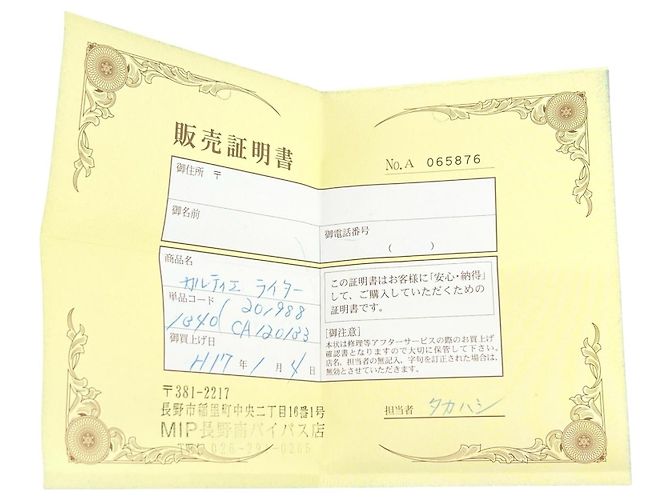 販売証明書
No.A 065876
御住所 〒
御名前
御電話番号
( )
商品名
カルティエ ライター
単品コード 201988
1840 CA120133
御買上げ日
H17年1月4日
この証明書はお客様に「安心・納得」
して、ご購入していただくための
証明書です。
[御注意]
本状は修理等アフターサービスの際のお買上げ
確認書となりますので大切に保管して下さい。
店名、担当者の無記入、字句を訂正された場合は、
無効とさせていただきます。
担当者 タカハシ
〒381-2217
長野市稲里町中央二丁目16番1号
MIP長野南バイパス店